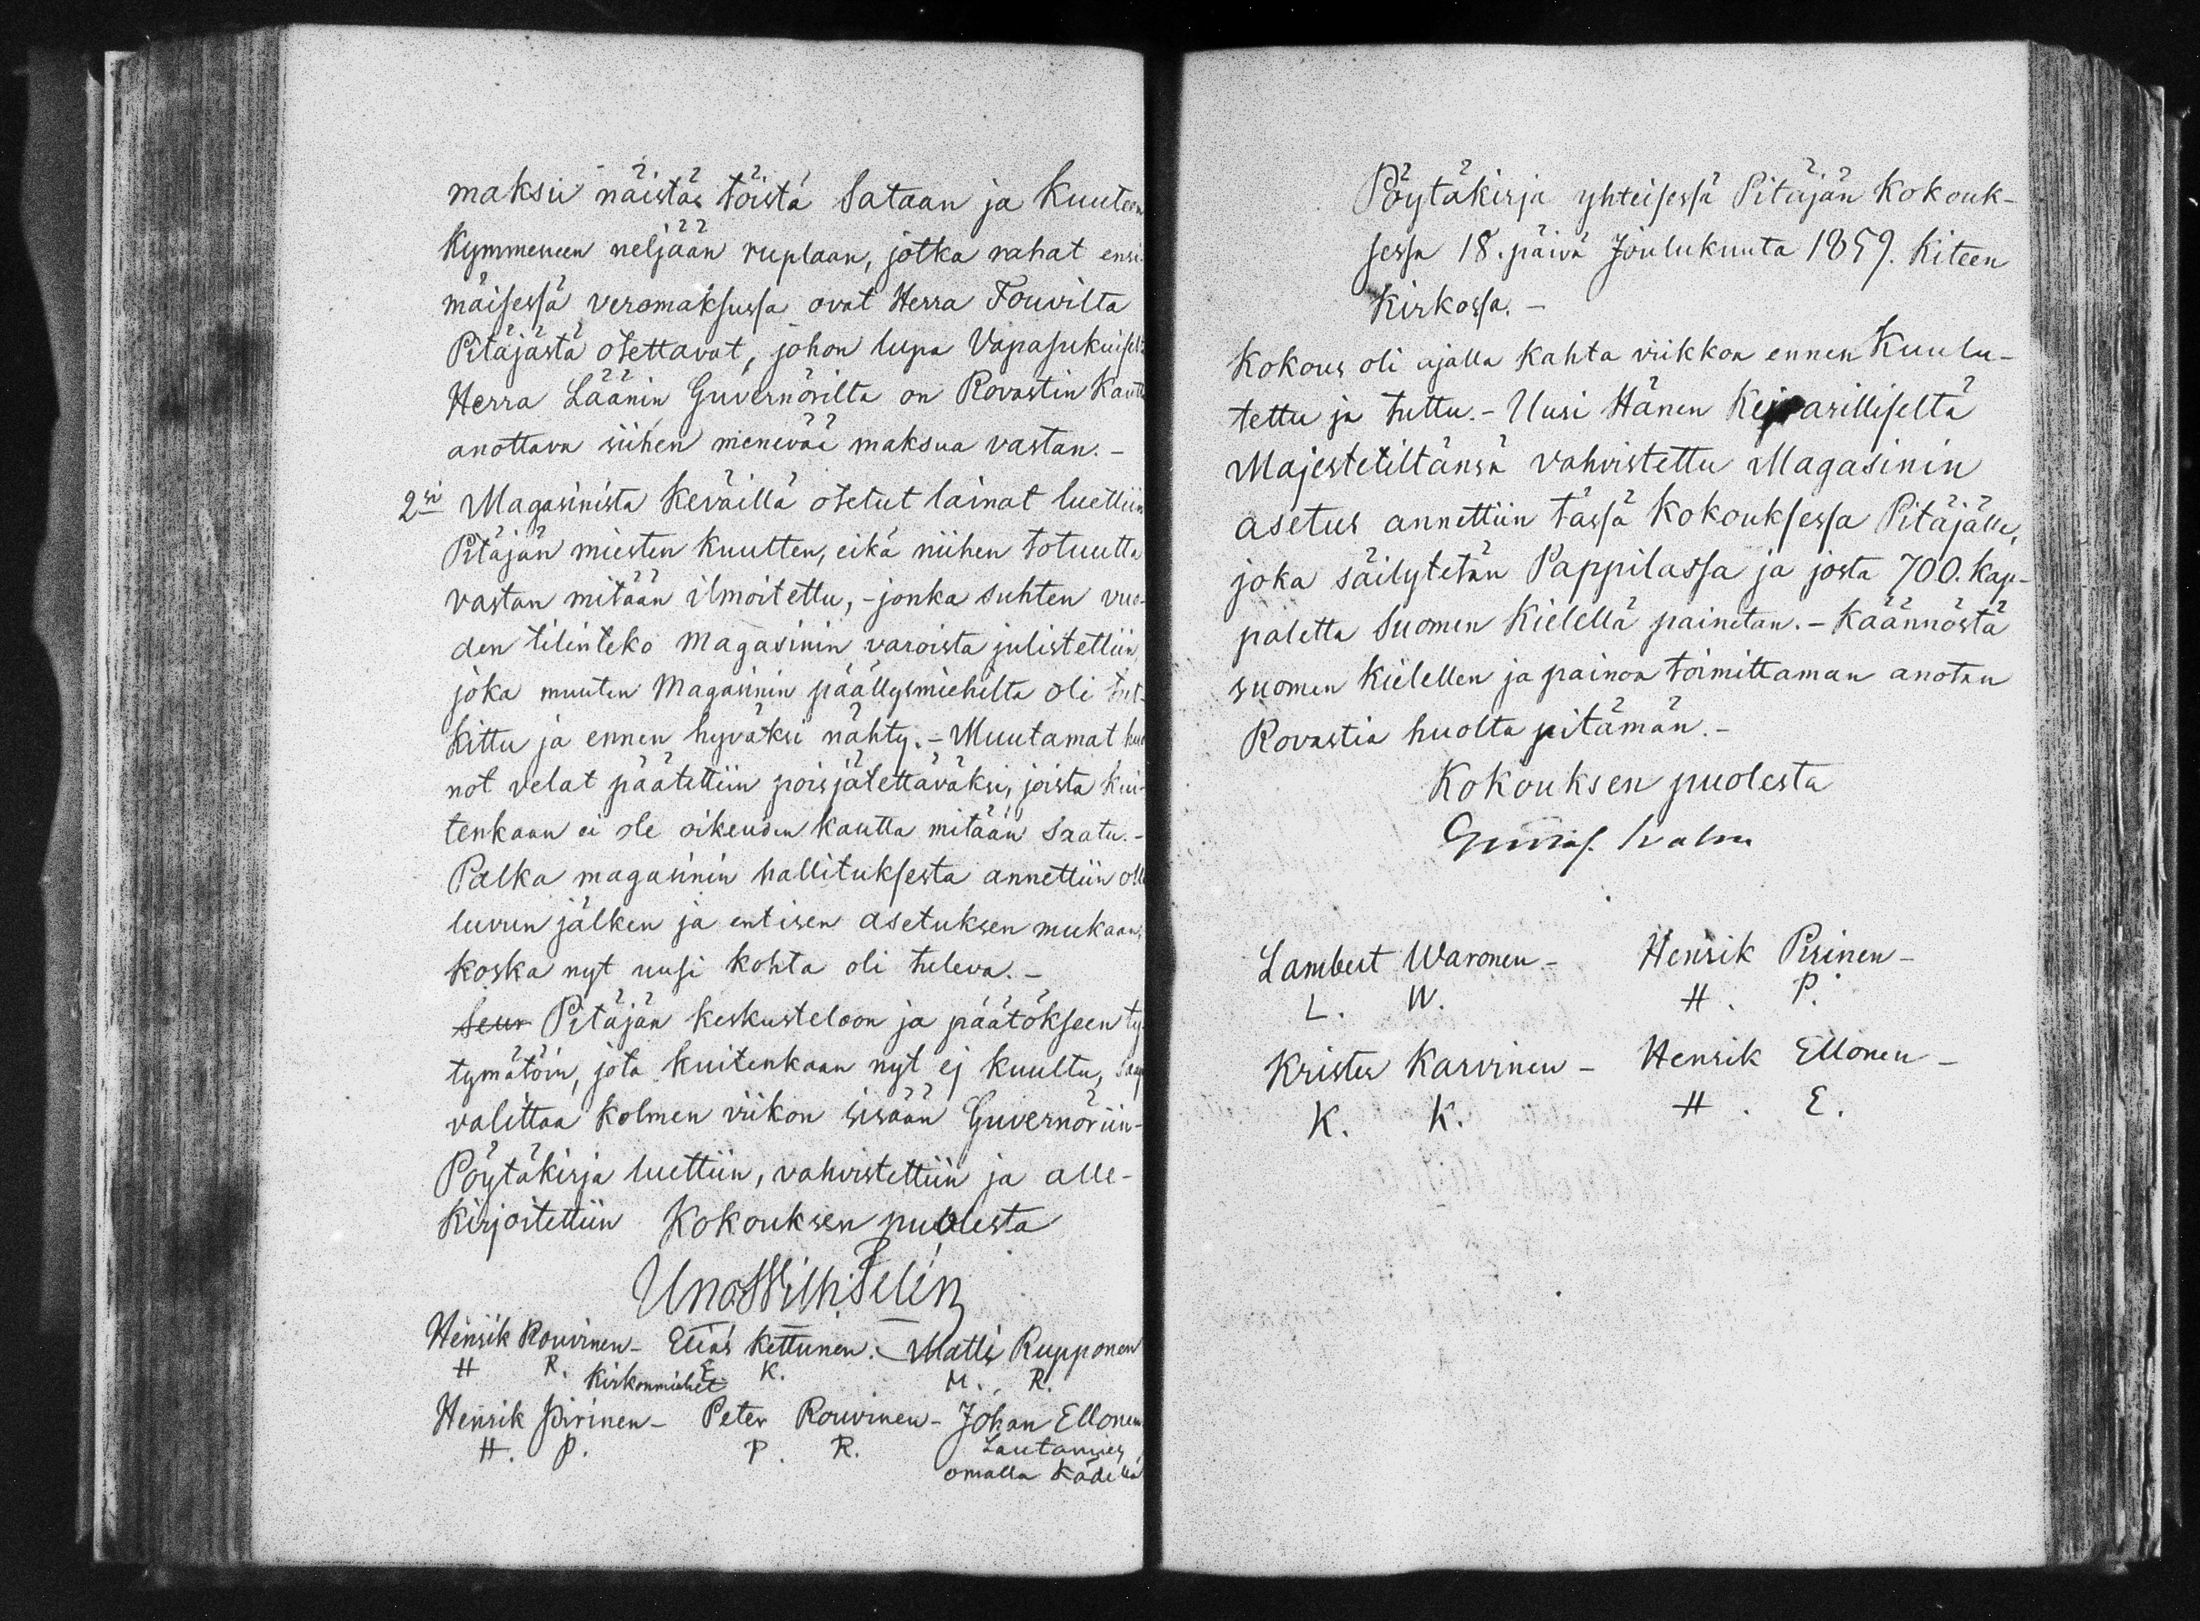 maksu näistä töistä Sataan ja Kuuteen
Kymmeneen neljään ruplaan, jotka rahat ensi
mäisessä veromaksussa ovat Herra Fouvilta
Pitäjästä otettavat, johon lupa Vapasukuiselta
Herra Läänin Guvernörilta on Rovastin Kautta
anottava siihen menevää maksua vastan. -
2si Magasinista Keväillä otetut lainat luettiin
Pitäjän miesten kuutten, eikä niihen totuutta
vastan mitään ilmoitettu, - jonka suhten vuo-
den tilinteko Magasinin varoista julistettiin,
joka muuten Magasinin päällysmiehiltä oli tut-
kittu ja ennen hyväksi nähty. - Muutamat huo
not velat päätettiin poisjätettäväksi, joista kui-
tenkaan ei ole oikeuden kautta mitään saatu. -
Palka magasinin hallituksesta annettiin
luvun jälken ja entisen asetuksen mukaan,
koska nyt uusi kohta oli tuleva. -
Seur Pitäjän keskusteloon ja päätökseen ty-
tymätöin, jota kuitenkaan nyt ej kuultu, saap
valittaa kolmen viikon sisään Guvernöriin-
Pöytäkirja luettiin, vahvistettiin ja alle-
kirjoitettiin Kokouksen puolesta
Uno Wilh. Telén
Henrik Rouvinen - Elias Kettunen. - Matti Rupponen
H R. Kirkonmiehet E K. M. R.
Henrik Pirinen - Peter Rouvinen - Johan Ellonen
H. P. P. R. Lautamies
omalla kädellä
Pöytäkirja yhteisessä Pitäjän Kokouk-
sessa 18. päivä Joulukuuta 1859. Kiteen
Kirkossa. -
Kokous oli ajalla kahta viikkoa ennen Kuulu-
tettu ja tuttu. - Uusi Hänen Kejsarilliseltä
Majestetiltänsä vahvistettu Magasinin
asetus annettiin tässä Kokouksessa Pitäjälle,
joka säilytetän Pappilassa ja josta 700. kap-
paletta Suomen Kielellä painetan. - Käännöstä
suomen kielellen ja painoa toimittaman anotan
Rovastia huolta pitämän. -
Kokouksen puolesta
Lambert Waronen - Henrik Pirinen -
L. W. H. P.
Krister Karvinen - Henrik Ellonen -
K. K. H. E.